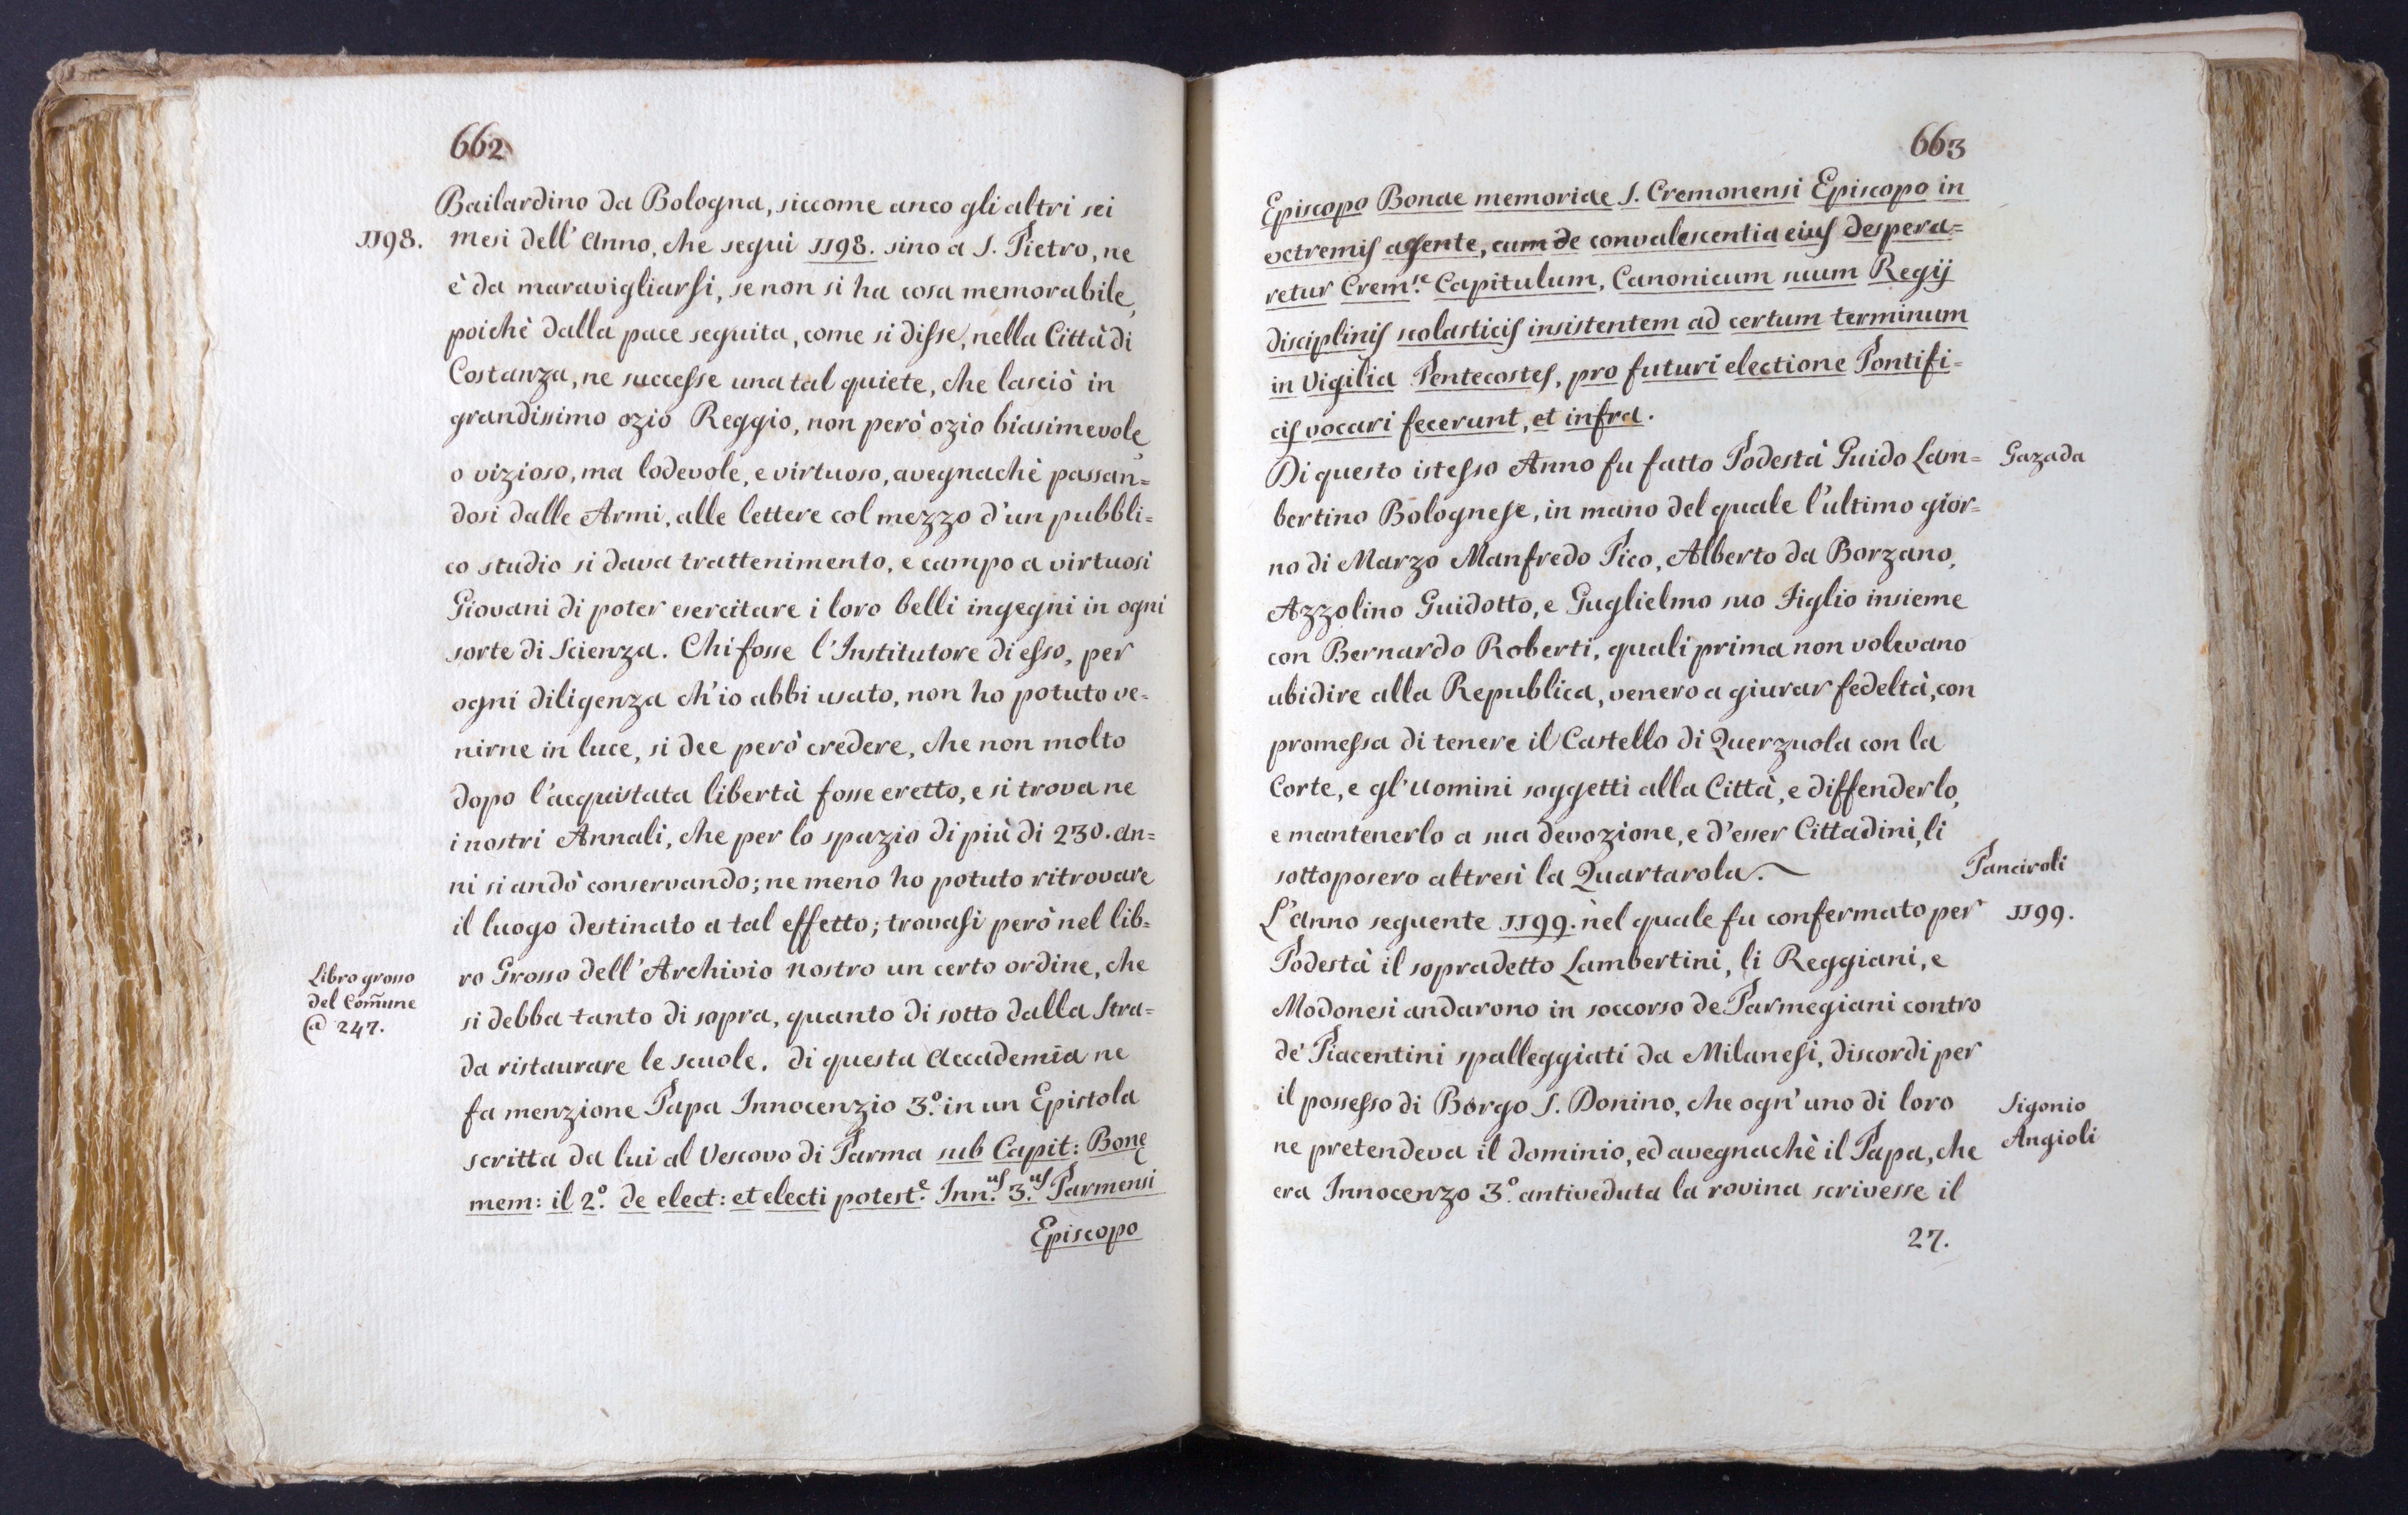 662
Bailardino da Bologna, siccome anco gli altri sei
1198. mesi dell'Anno, che seguì 1198. sino a S. Pietro, ne
è da maravigliarsi, se non si ha cosa memorabile,
poichè dalla pace seguita, come si disse, nella Città di
Costanza, ne successe una tal quiete, che lasciò in
grandissimo ozio Reggio, non però ozio biasimevole,
o vizioso, ma lodevole, e virtuoso, avegnachè passan=
dosi dalle Armi, alle lettere col mezzo d'un pubbli=
co studio si dava trattenimento, e campo a virtuosi
Giovani di poter esercitare i loro belli ingegni in ogni
sorte di Scienza. Chi fosse l'Institutore di esso, per
ogni diligenza ch'io abbi usato, non ho potuto ve=
nirne in luce, si dee però credere, che non molto
dopo l'acquistata libertà fosse eretto, e si trova ne
i nostri Annali, che per lo spazio di più di 230. an=
ni si andò conservando; ne meno ho potuto ritrovare
il luogo destinato a tal effetto; trovasi però nel lib=
Libro grosso
del Com̃une
@ 247.
ro Grosso dell'Archivio nostro un certo ordine, che
si debba tanto di sopra, quanto di sotto dalla Stra=
da ristaurare le scuole. di questa Accademia ne
fa menzione Papa Innocenzio 3.º in un Epistola
scritta da lui al Vescovo di Parma sub Capit: Bonę
mem: il 2.º de elect: et electi potest.e Inn.us 3.us Parmensi
Episcopo
663
Episcopo Bonae memoriae S. Cremonensi Episcopo in
extremis agente, cum de convalescentia eius despera=
retur Crem.se Capitulum, Canonicum suum Regij
disciplinis scolasticis insistentem ad certum terminum
in Vigilia Pentecostes, pro futuri electione Pontifi=
cis vocari fecerunt, et infra.
Di questo istesso Anno fu fatto Podestà Guido Lam= Gazada
bertino Bolognese, in mano del quale l'ultimo gior=
no di Marzo Manfredo Pico, Alberto da Borzano,
Azzolino Guidotto, e Guglielmo suo Figlio insieme
con Bernardo Roberti, quali prima non volevano
ubidire alla Republica, venero a giurar fedeltà, con
promessa di tenere il Castello di Querzuola con la
Corte, e gl'uomini soggetti alla Città, e diffenderlo,
e mantenerlo a sua devozione, e d'esser Cittadini, li
sottoposero altresì la Quartarola. Panciroli
L'anno seguente 1199. nel quale fu confermato per 1199.
Podestà il sopradetto Lambertini, li Reggiani, e
Modonesi andarono in soccorso de Parmegiani contro
de' Piacentini spalleggiati da Milanesi, discordi per
il possesso di Borgo S. Donino, che ogn'uno di loro Sigonio
ne pretendeva il dominio, ed avegnachè il Papa, che Angioli
era Innocenzo 3.º antiveduta la rovina scrivesse il
27.